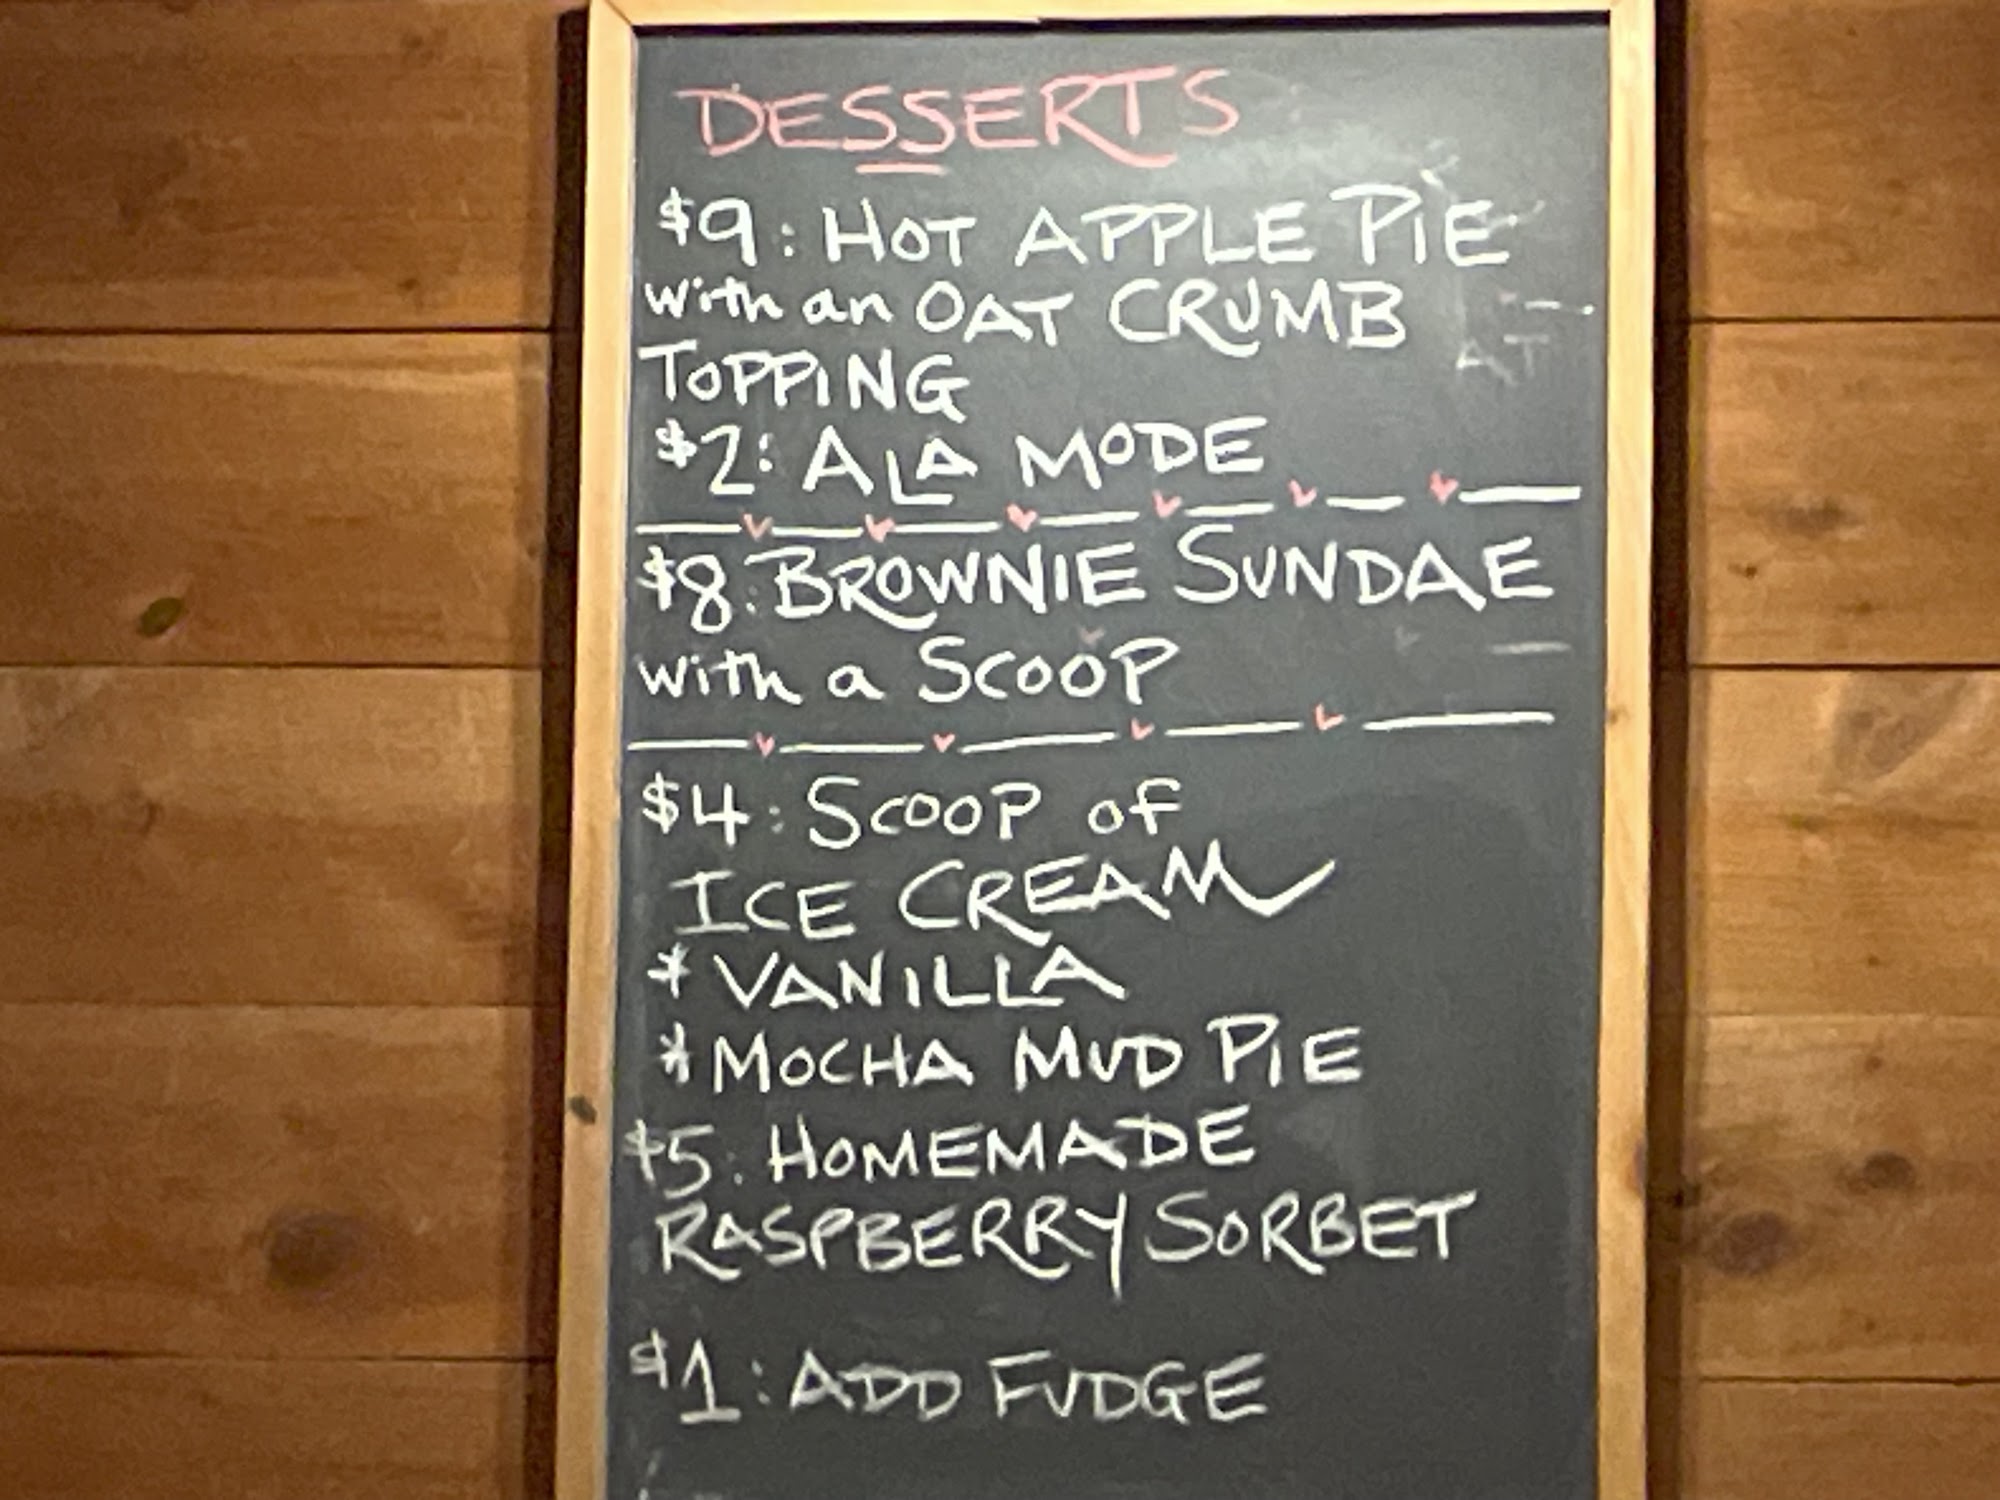 DESSERTS
$9: HOT APPLE PIE
with an OAT CRUMB
TOPPING
$2: ALA MODE
$8: BROWNIE SUNDAE
with a SCOOP
$4: SCOOP OF
ICE CREAM
* VANILLA
* MOCHA MUD PIE
$5: HOMEMADE
RASPBERRY SORBET
$1: ADD FUDGE